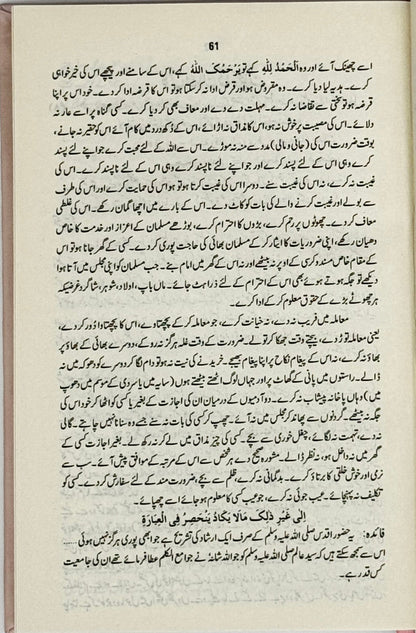 61
اسے چھینک آئے اور وہ اَلْحَمْدُ لِلّٰهِ کہے تو يَرْحَمُكَ اللّٰهُ کہے، اس کے سامنے اور پیچھے اس کی خیر خواہی
کرے۔ ہدیہ لیا دیا کرے۔ وہ مقروض ہو اور قرض ادا نہ کرسکتا ہو تو اس کا قرضہ ادا کر دے۔ خود اس پر اپنا
قرضہ ہو تو سختی سے تقاضا نہ کرے۔ مہلت دے دے اور معاف بھی کر دیا کرے۔ کسی گناہ پر اسے عار نہ
دلائے۔ اس کی مصیبت پر خوش نہ ہو، اس کا مذاق نہ اڑائے، اس کے دکھ درد میں کام آئے اس کو حقیر نہ جانے،
بوقت ضرورت اس کی (جانی و مالی) مدد سے منہ نہ موڑے۔ اس سے اللہ کے لئے محبت کرے جو اپنے لئے پسند
کرے وہی اس کے لئے پسند کرے اور جو اپنے لئے ناپسند کرے وہی اس کے لئے ناپسند کرے۔ اس کی
غیبت نہ کرے، نہ اس کی غیبت سنے۔ دوسرا اس کی غیبت کرتا ہو تو ہو اس کی حمایت کرے اور اس کی طرف
سے بولے اور غیبت کرنے والے کی بات کو کاٹ دے۔ اس کے بارے میں اچھا گمان رکھے۔ اس کی غلطی
معاف کر دے۔ چھوٹوں پر رحم کرے، بڑوں کا احترام کرے، بوڑھے مسلمان کے اعزاز اور خدمت کا خاص
دھیان رکھے، اپنی ضروریات کا ایثار کر کے مسلمان بھائی کی حاجت پوری کر دے۔ کسی کے گھر جانا ہو تو اس
کے مقام خاص مسند کرسی کے اوپر نہ بیٹھے اور نہ اس کے گھر میں امام بنے۔ جب مسلمان کو اپنی مجلس میں آتا ہوا
دیکھے تو جگہ ہوتے ہوئے بھی اس کے احترام کے لئے ذرا ہٹ جائے۔ ماں باپ، اولاد، شوہر، شاگرد غرضیکہ
ہر چھوٹے بڑے کے حقوق معلوم کر کے ادا کرے۔
معاملہ میں فریب نہ دے، نہ خیانت کرے، جو معاملہ کر کے پچھتا دے، اس کا پچھتاوا دور کر دے،
یعنی معاملہ توڑ دے، بیچتے وقت جھکا کر تولے۔ ضرورت کے وقت غلہ ہرگز نہ روکے، دوسرے بھائی کے بھاؤ پر
بھاؤ نہ کرے، نہ اس کے پیغام نکاح پر اپنا پیغام بھیجے۔ خریدنے کی نیت نہ ہو تو دام لگا کر دوسرے کو دھوکہ میں نہ
ڈالے۔ راستوں میں پانی کے گھاٹ پر اور جہاں لوگ اٹھتے بیٹھتے ہوں (سایہ میں یا سردی کے موسم میں دھوپ
میں) وہاں پاخانہ پیشاب نہ کرے۔ دو آدمیوں کے درمیان ان کی اجازت کے بغیر یا کسی کو اٹھا کر خود اس کی
جگہ نہ بیٹھے۔ گردنوں سے پھاند کر مجلس میں نہ آئے۔ چھپ کر کسی کی بات نہ سنے جسے وہ سنانا نہیں چاہتے۔ گالی
نہ دے، تہمت نہ لگائے، چغل خوری سے بچے۔ کسی کی چیز مذاق میں لے کر نہ رکھ لے۔ بغیر اجازت کسی کے
گھر میں نہ داخل ہو، نہ نظر ڈالے۔ مشورہ صحیح دے ہر شخص سے اس کے مرتبہ کے موافق پیش آئے۔ سب سے
نرمی اور خوش خلقی کا برتاؤ کرے۔ بدگمانی نہ کرے، ظلم سے بچے، ضرورت مند کے لئے سفارش کر دے۔ کسی کو
تکلیف نہ پہنچائے۔ عیب جوئی نہ کرے، جو عیب کسی کا معلوم ہو جائے اسے چھپائے۔
اِلٰى غَيْرِ ذٰلِكَ مَا لَا يَكَادُ يَنْحَصِرُ فِي الْعِبَارَةِ
فائدہ: یہ حضور اقدس صلی اللہ علیہ وسلم کے صرف ایک ارشاد کی تشریح ہے جو ابھی پوری ہرگز نہیں ہوئی
اس سے سمجھ سکتے ہیں کہ سید عالم صلی اللہ علیہ وسلم کو جو اللہ شانہٗ نے جامع الکلم عطا فرمائے تھے ان کی جامعیت
کس قدر ہے۔